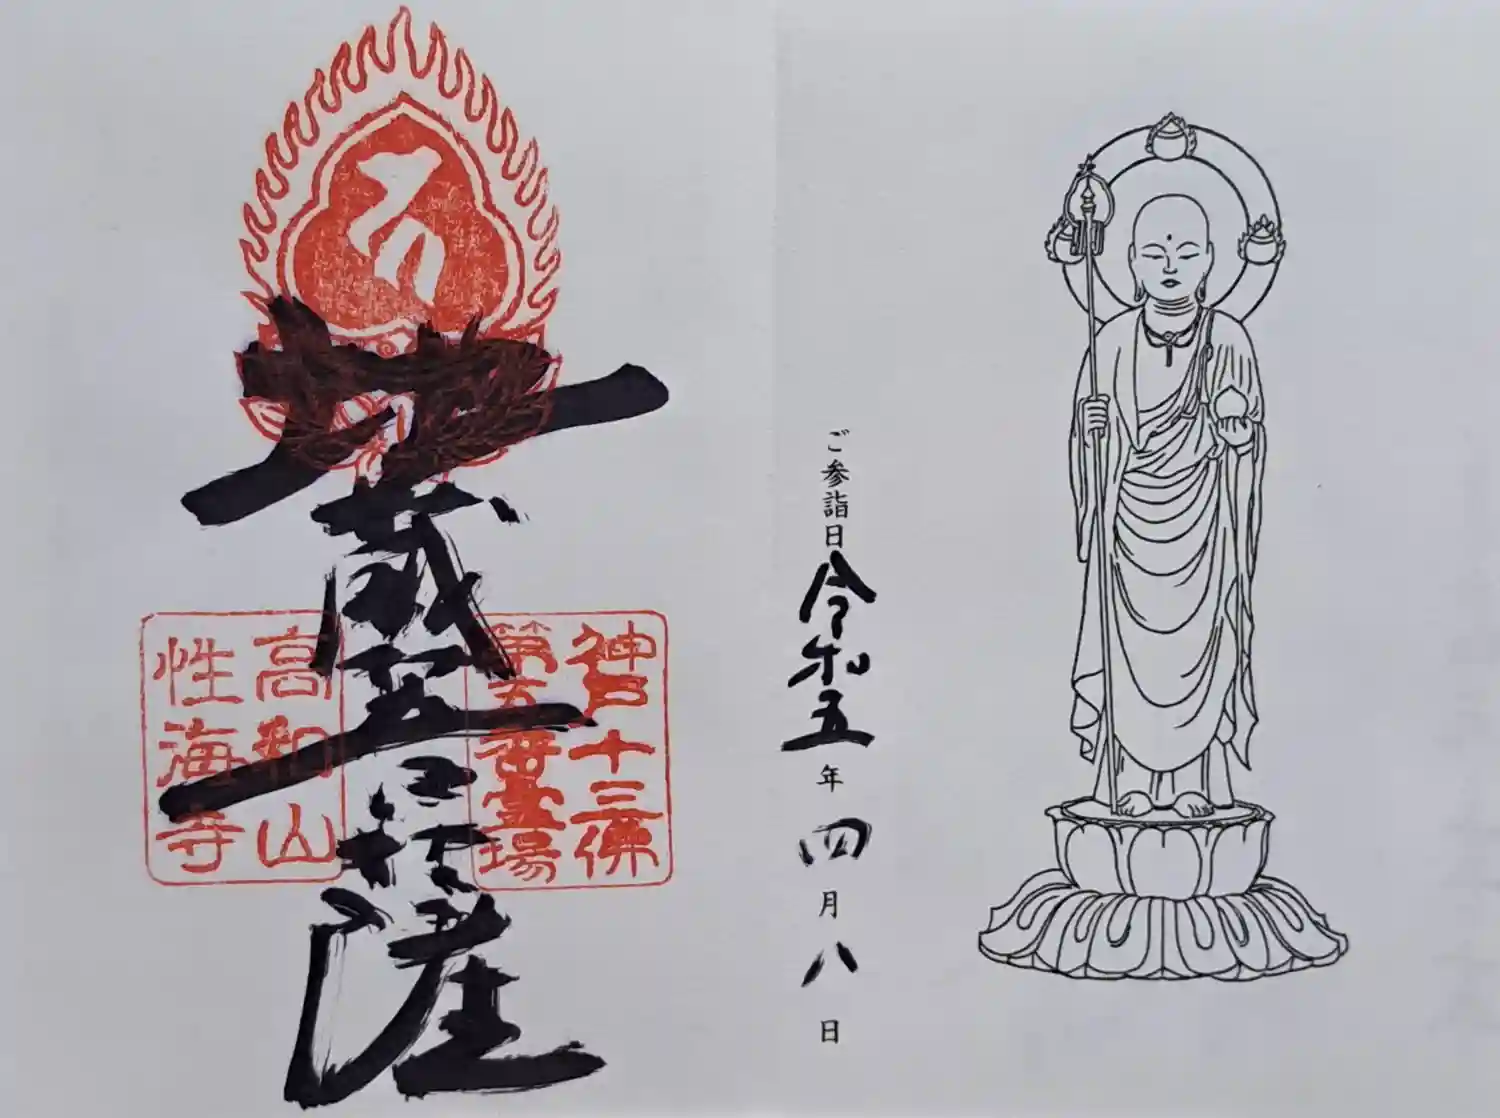 ご参詣日 令和五年四月八日
神戸十三佛
第五番霊場
地蔵菩薩
高和山
性海寺